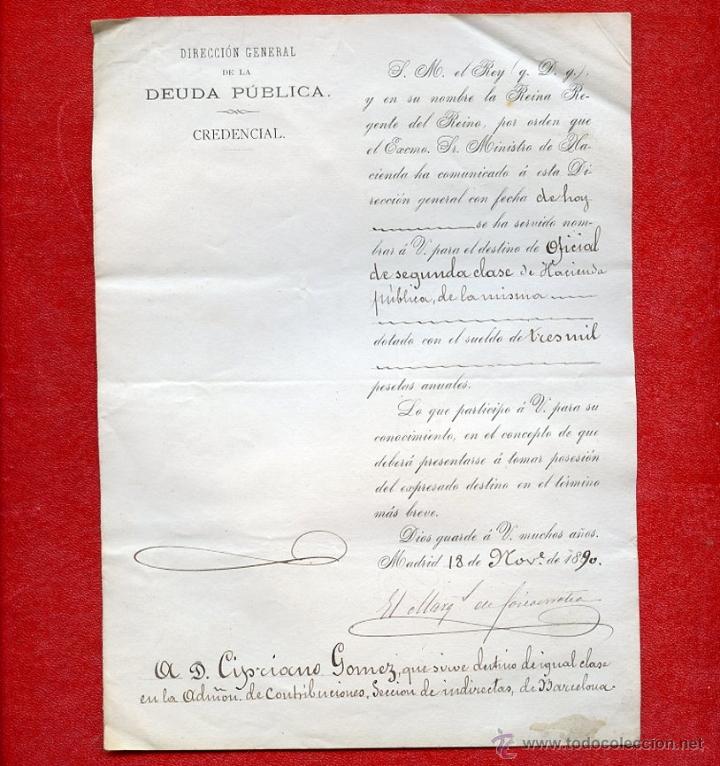 DIRECCIÓN GENERAL
DE LA
DEUDA PÚBLICA.
CREDENCIAL.
S. M. el Rey (q. D. g.),
y en su nombre la Reina Re-
gente del Reino, por orden que
el Excmo. Sr. Ministro de Ha-
cienda ha comunicado á esta Di-
rección general con fecha de hoy
se ha servido nom-
brar á V. para el destino de Oficial
de segunda clase de Hacienda
pública, de la misma
dotado con el sueldo de tres mil
pesetas anuales.
Lo que participo á V. para su
conocimiento, en el concepto de que
deberá presentarse á tomar posesión
del expresado destino en el término
más breve.
Dios guarde á V. muchos años.
Madrid 18 de Nove. de 1890.
El Marqs. de
A D. Cipriano Gomez, que sirve destino de igual clase
en la Admón. de Contribuciones, Seccion de indirectas, de Barcelona.
www.todocoleccion.net